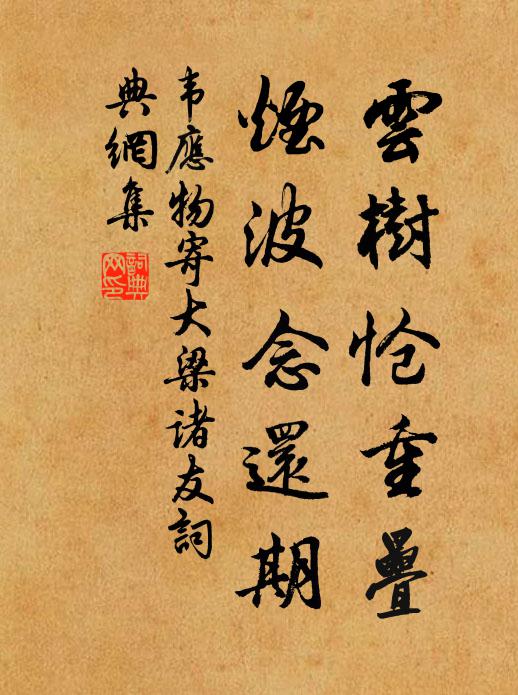 雲樹愴重疊
煙波念還期
韦應物寄大梁诸友詞
典網集
詞典
网印